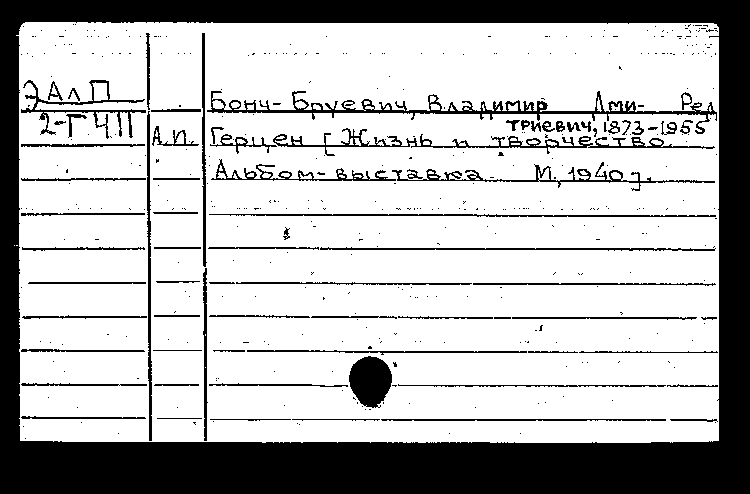 ЭАлП
2-Г 411
Бонч-Бруевич, Владимир Дми- Ред
триевич, 1873-1955
А.И. Герцен [Жизнь и творчество.
Альбом-выставка М., 1940].